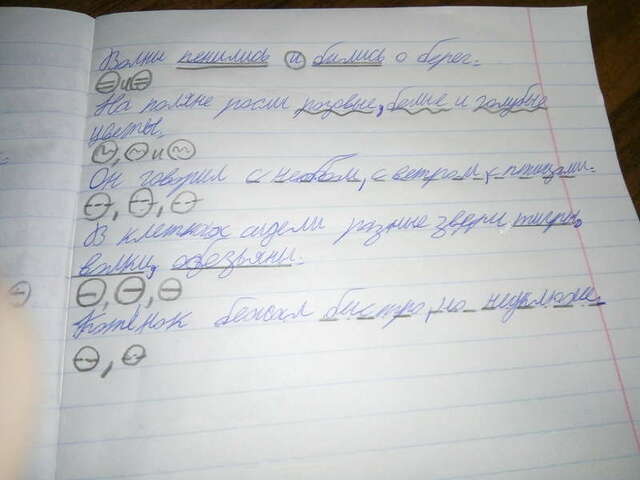 Волны пенились и бились о берег.
и
На поляне росли розовые, белые и голубые
цветы.
, и
Он говорил с небом, с ветром, с птицами.
, ,
В клетках сидели разные звери тигры,
волки, обезьяны.
, ,
Котёнок бежал быстро, но неуклюже.
,